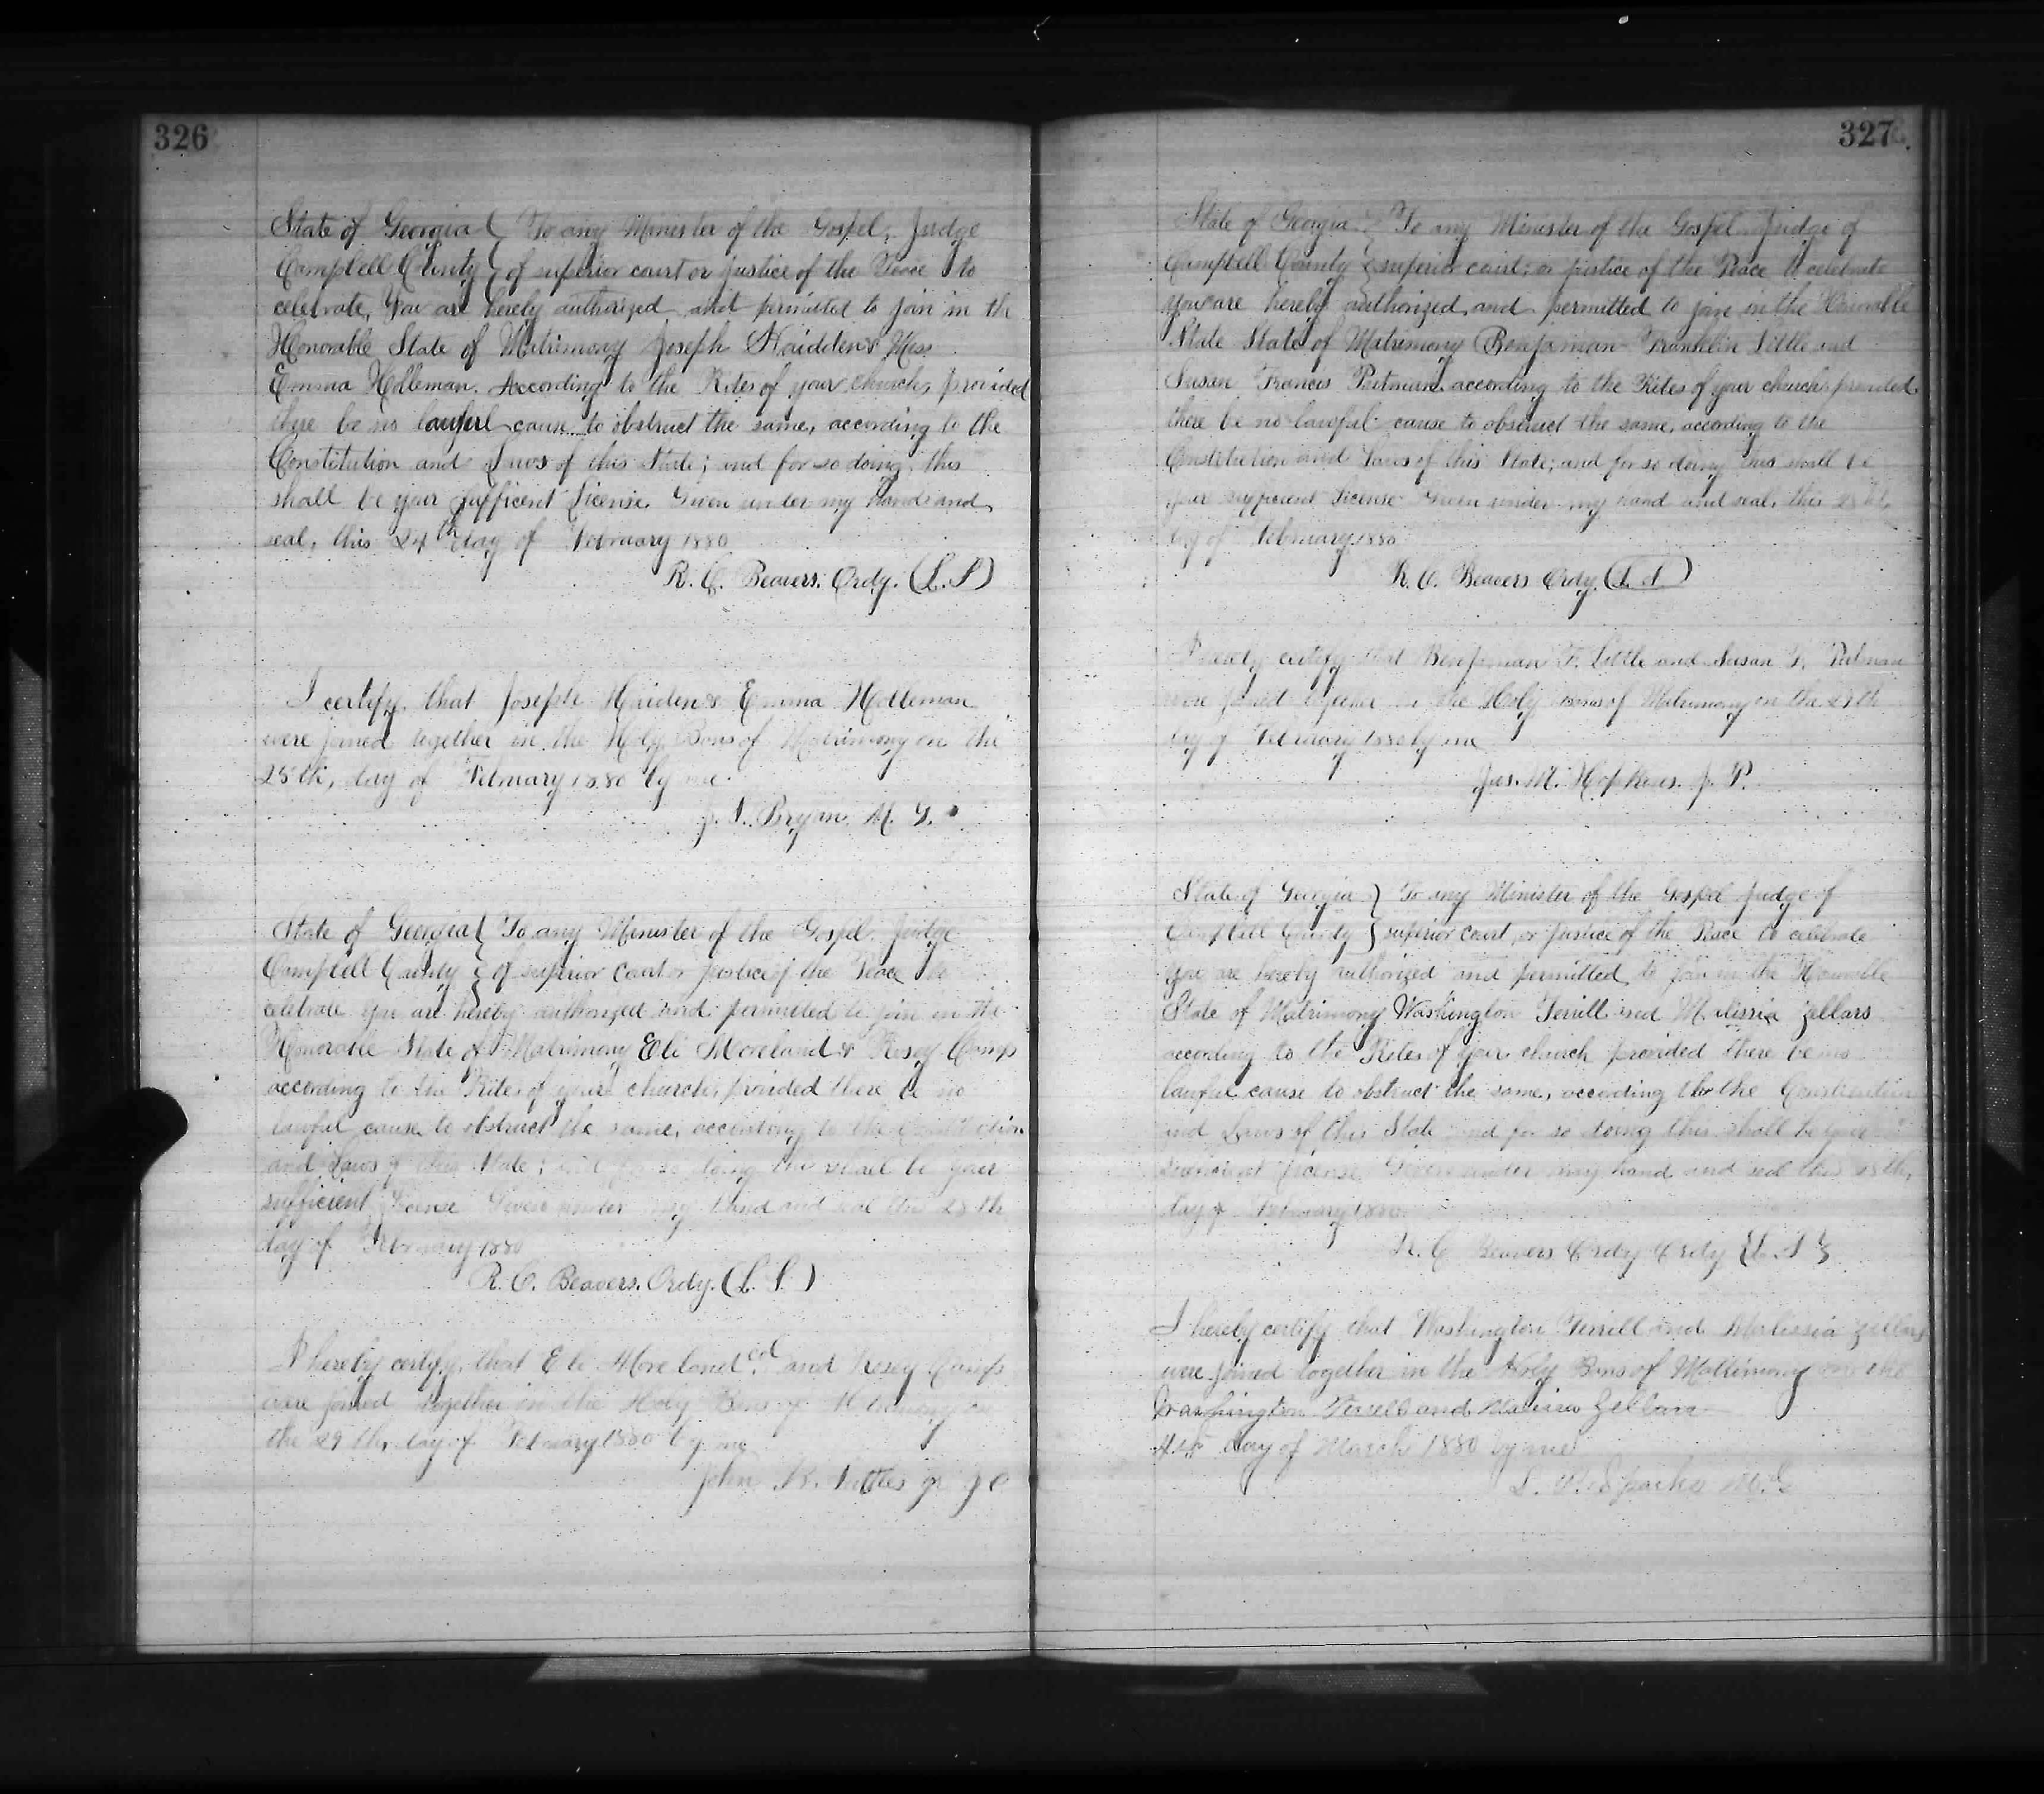 326
State of Georgia { To any Minister of the Gospel, Judge
Campbell County { of superior court or justice of the Peace to
celebrate, You are hereby authorized and permitted to join in the
Honorable State of Matrimony Joseph Haidden & Miss
Emma Holleman. According to the Rites of your church, provided
there be no lawful cause to obstruct the same, according to the
Constitution and Laws of this State; and for so doing, this
shall be your sufficent License. Given under my hand and
seal, this 24th day of February 1880
R. C. Beavers. Ordy. (L.S)
I certify, that Joseph Haiden & Emma Holleman
were joined together in the Holy Bons of Matrimony on the
25th, day of February 1880 by me.
J. N. Bryan. M. G.
State of Georgia { To any Minister of the Gospel. Judge
Campbell County { of superior Court or justice of the Peace to
celebrate you are hereby authorized and permitted to join in the
Honorable State of Matrimony Eli Moreland & Rosey Camp
according to the Rites of your church, provided there be no
lawful cause to obstruct the same, according to the Constitution
and Laws of this State; and for so doing this shall be your
sufficient License Given under my hand and seal this 28th
day of February 1880
R. C. Beavers. Ordy. (L. S.)
I hereby certify, that Eli Moreland cold and Rosey Camp
were joined together in the Holy Bons of Matrimony on
the 29th, day of February 1880 by me
John R. Suttles jr J P
327
State of Georgia } To any Minister of the Gospel Judge of
Campbell County } superior court, or justice of the Peace to celebrate
you are hereby authorized, and permitted to join in the Honorable
State State of Matrimony Benjaman Franklin Little and
Susan Francis Putman according to the Rites of your church, provided
there be no lawful cause to obstruct the same, according to the
Constitution and Laws of this State; and for so doing this shall be
your sufficient License Given under my hand and seal, this 28th,
day of February 1880
R. C. Beavers Ordy. (L. S.)
I hereby certify that Benjaman F. Little and Susan F. Putman
were joined together in the Holy Bons of Matrimony on the 29th
day of February 1880 by me
Jas. M. Hopkins. J. P.
State of Georgia } To any Minister of the Gospel Judge of
Campbell County } superior court, or Justice of the Peace to celebrate
You are hereby authorized and permitted, to join in the Honorable
State of Matrimony Washington Terrill and Malissia Zellars
according to the Rites of your church provided there be no
lawful cause to obstruct the same, according to the Constitution
and Laws of this State and for so doing this shall be your
License Given under my hand and seal this
day of February 1880
R. C. Beavers Ordy Ordy {L. S.}
I hereby certify that Washington Terrill and Malissia Zellars
were joined together in the Holy Bons of Matrimony on the
Washington Terrell and Malissia Zellars
4th day of March 1880 by me
L. P. Sparks M. G